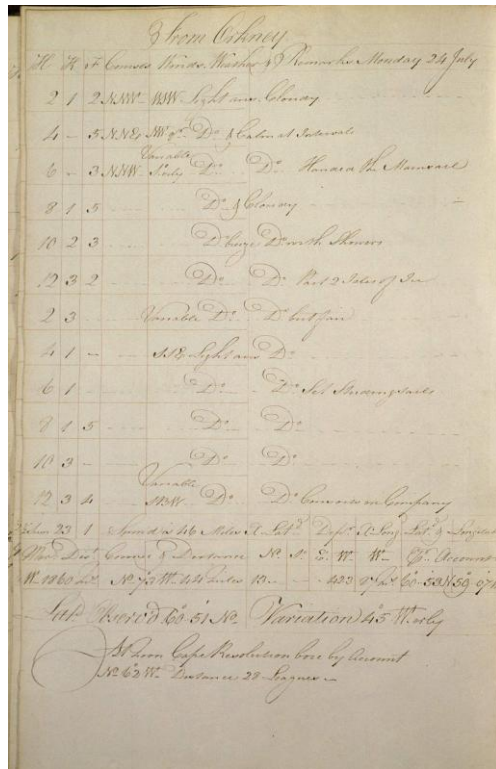 From Orkney
H K F Courses Winds Weather & Remarks Monday 24 July
2 1 2 NNW WSW Light airs Cloudy
4 - 5 NNE Do & Calm at Intervals
Variable
6 - 3 NNW Do Do Handed the Mainsail
8 1 5 Do & Cloudy
10 2 3 Do Do with Showers
12 3 2 Do Do Past 2 Isles of Ice
2 3 Variable Do Do but fair
4 1 - Light airs Do
6 1 Do Do Set Studingsails
8 1 5 Do Do
10 3 - Do Do
Variable
12 3 4 Do Do Convoy in Company
23 1 46 Miles Latd Depr Long Latd & Longitude
Merd Dist Course & Distance N S E W W Pr Account
W 1860 No 73 Wt 44 Miles 13 60 53 N 59
Latd Observed 60 51 No Variation 45 Werly
At Noon Cape Resolution bore by Account
No 62 Wt Distance 28 Leagues